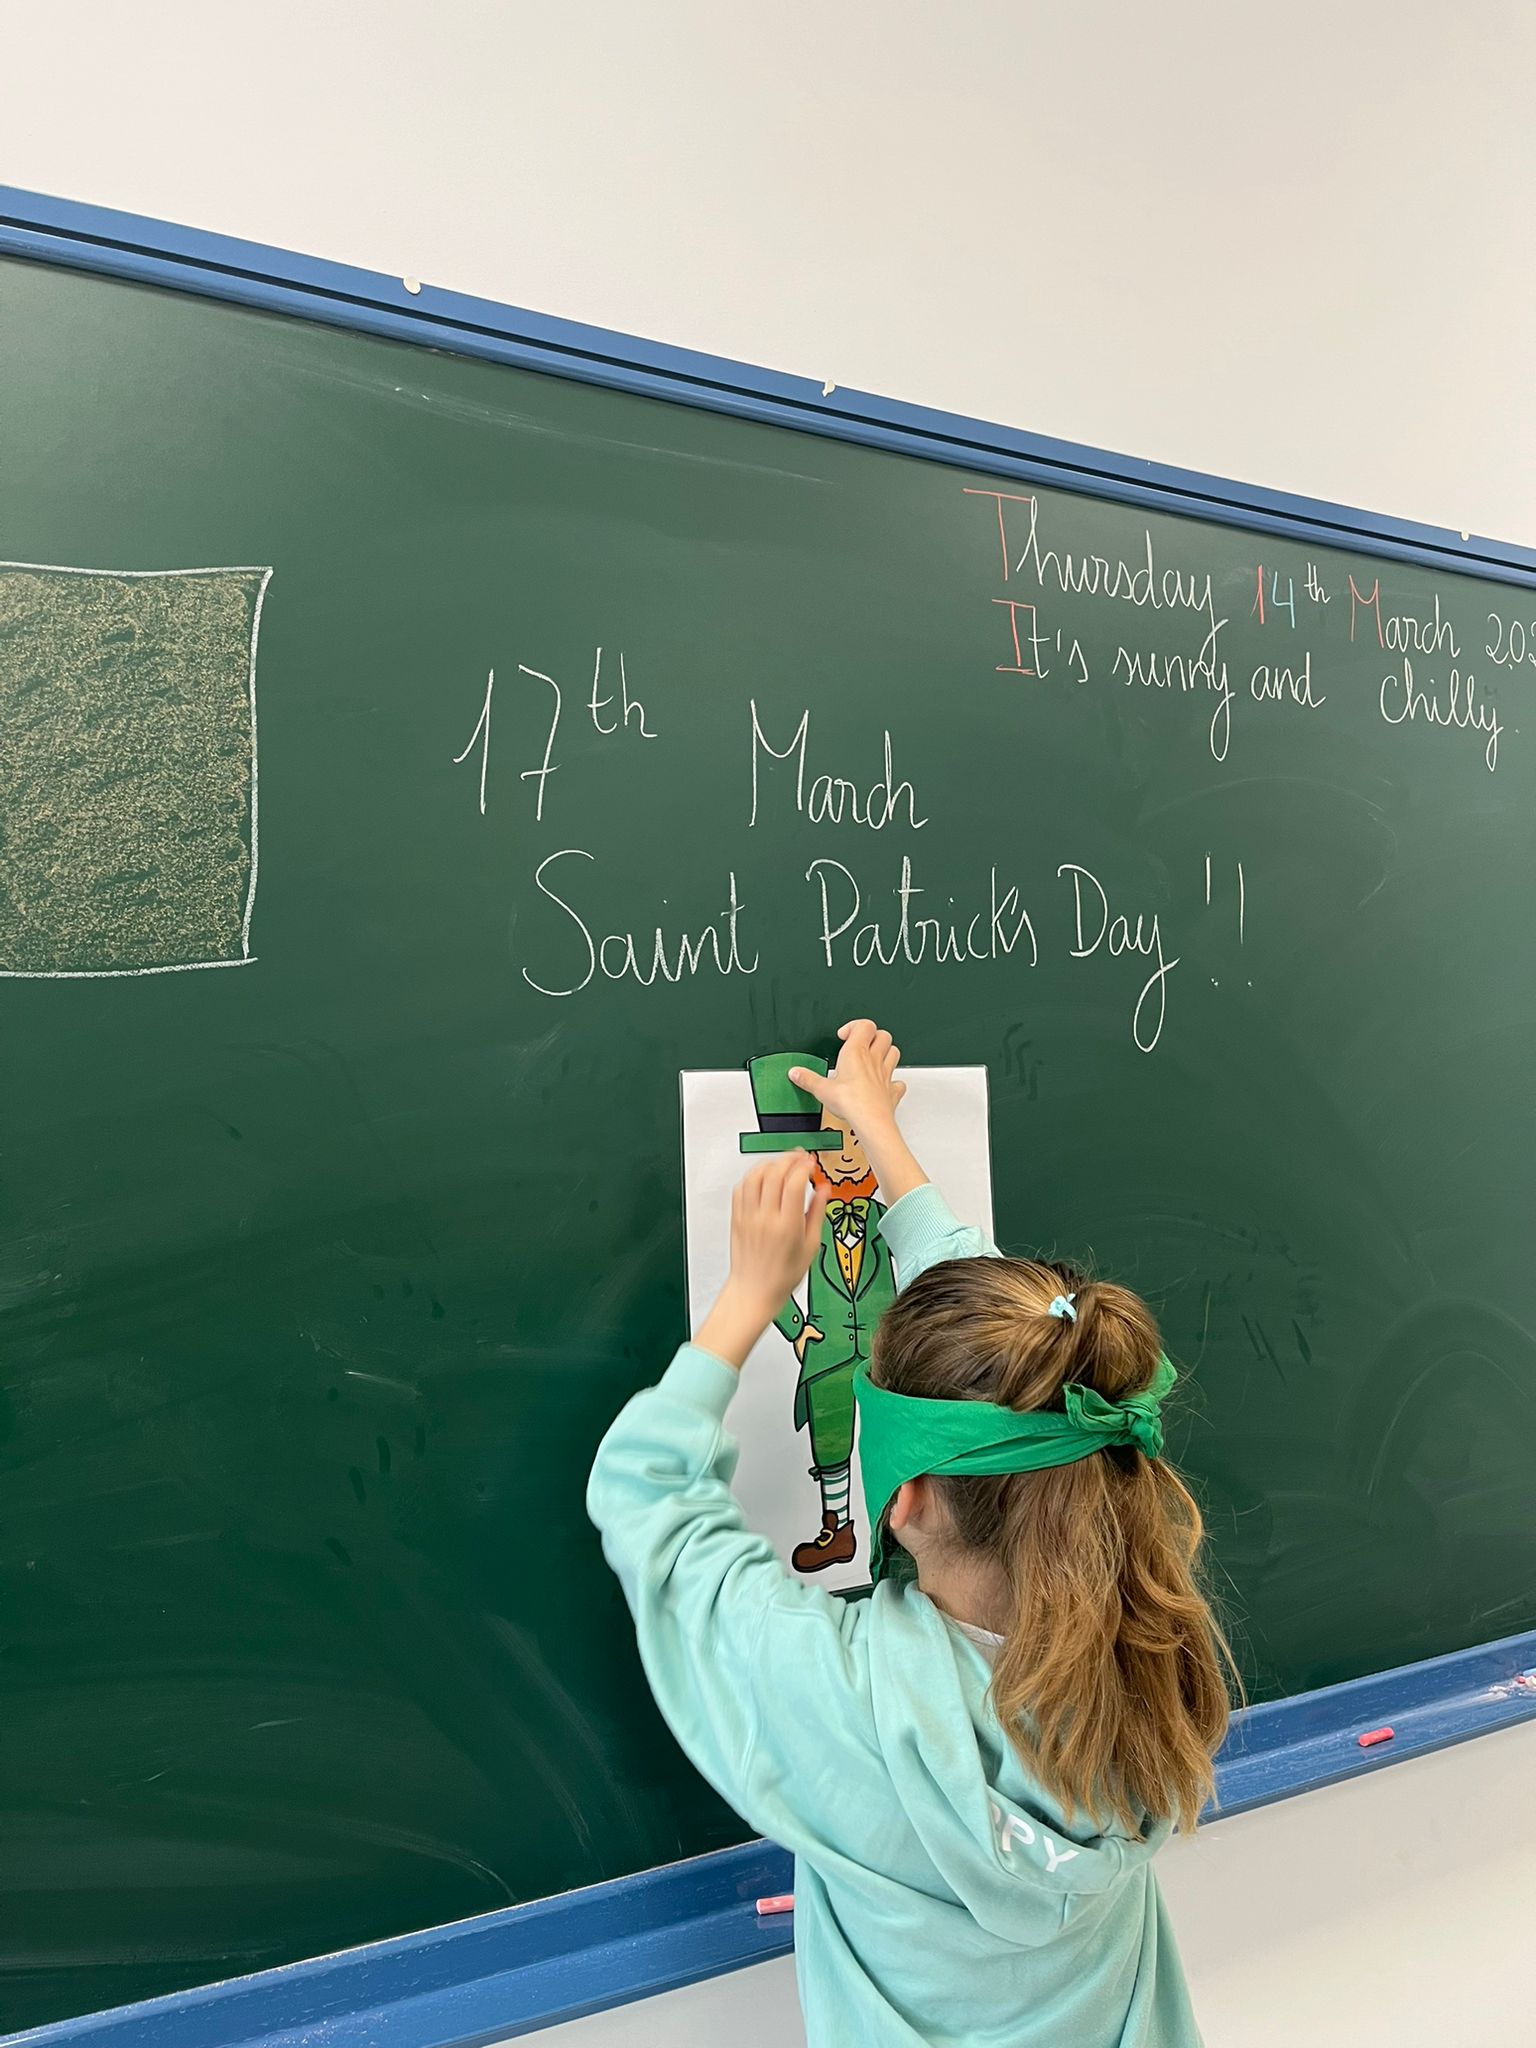 Thursday 14th March
It's sunny and chilly.
17th March
Saint Patrick's Day !!
PY